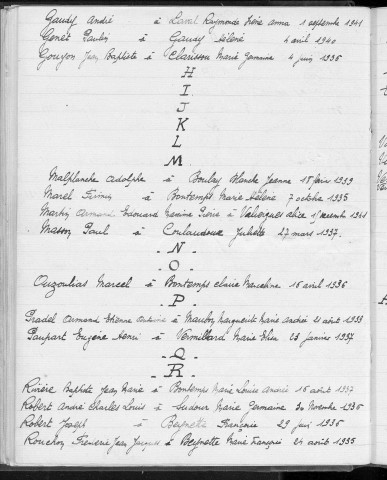 Gaudy André à Lanil Raymonde Irène anna 1 septembre 1941
Genet Paulin à Gaudy Hélène 4 avril 1940
Gouyon Jean Baptiste à Clarissou Marie Germaine 4 juin 1936
H
I
J
K
L
M
Malplanche Adolphe à Boulay Blanche Jeanne 18 1939
Marel Firmin à Bontemps Marie Hélène 7 octobre 1935
Martin Armand Edouard à Valiergues alice 1941
Masson Paul à Coulaudoux Juliette 27 mars 1937.
. N .
. O .
Ouzoulias Marcel à Bontemps claire Marceline 16 avril 1936
. P .
Pradel Armand Etienne Antoine à Maubon Marguerite Marie Andrée 21 août 1933
Paupart Eugène Henri à Vermillard Marie 23 janvier 1937
. Q .
. R .
Rivière Baptiste Jean Marie à Bontemps Marie Louise Andrée 16 août 1937
Robert André Charles Louis à Sudour Marie Germaine 30 Novembre 1936
Robert Joseph à Beynette Françoise 29 juin 1936
Rouchon Jean Jacques à Beynette Marie Françoise 24 août 1935